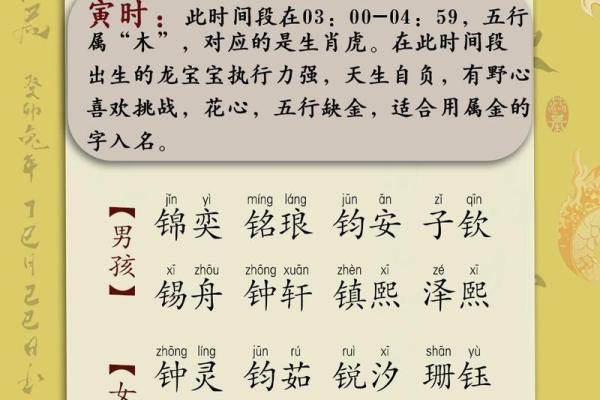 寅时：此时间段在03：00—04：59，五行
属“木”，对应的是生肖虎。在此时间段
出生的龙宝宝执行力强，天生自负，有野心
喜欢挑战，花心，五行缺金，适合用属金的
字入名。
【男孩】
jǐn yì míng láng jūn ān zǐ qīn
锦奕 铭琅 钧安 子钦
xī zhōu zhōng xuān zhèn xī zé xī
锡舟 钟轩 镇熙 泽熙
【女
zhōng líng jūn rú ruì xī shān yù
钟灵 钧茹 锐汐 珊钰
癸卯兔年
丁巳月己巳日